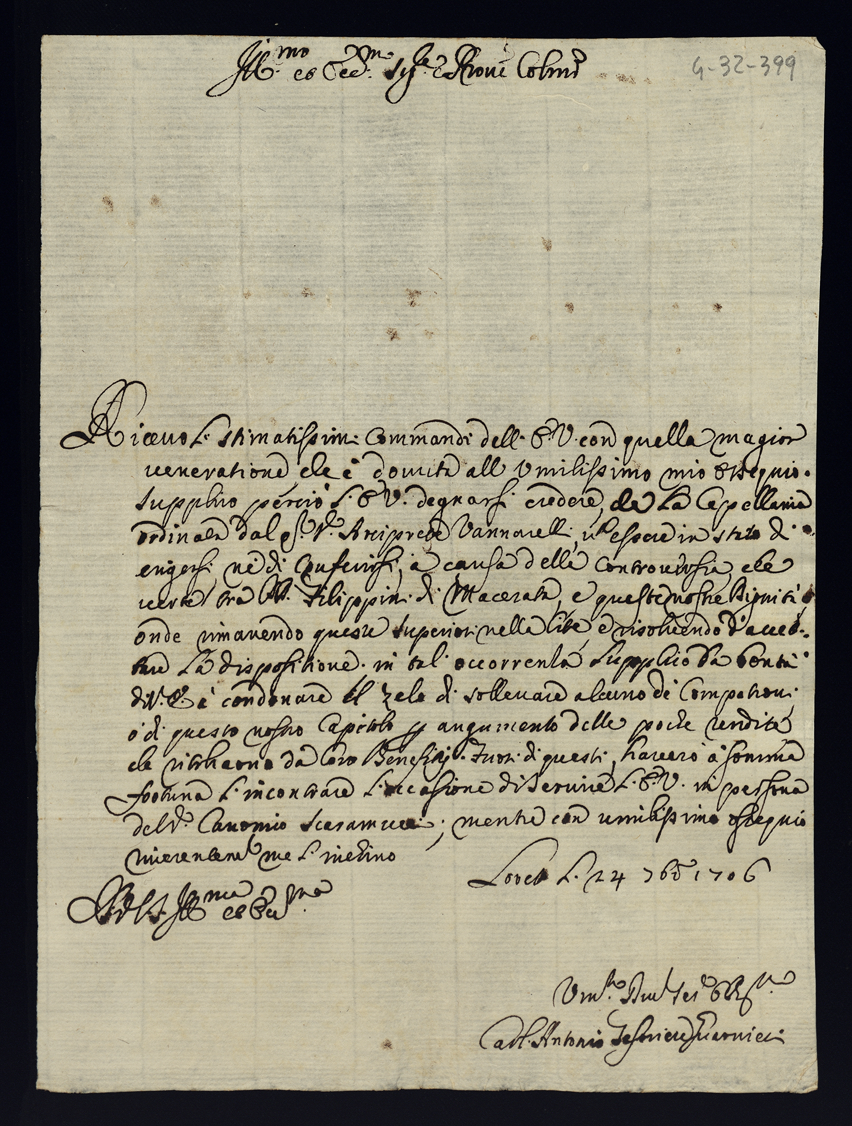 Ill.mo et Ecc.mo Sig.re Prone Colmo
G-32-399
Ricevo l. stimatissimi Commandi dell. E. V. con quella magior
veneratione che è dovuta all Umilissimo mio ossequio.
Supplico perciò l. E. V. degnarsi credere, che La Capellania
ordinata dal Arciprete Vannarelli, essere in stato di
erigersi ne di conferirsi, à causa delle Controversie che
verte tra Filippini di Macerata, e queste nostre Dignità,
onde rimanendo queste superiori nella lite è risolvendo d'accet-
tare La dispositione. in tal occorrenza Supplico La bontà
di V. E. à condonare il zelo di sollevare alcuno de Compatrioti
ò di questo nostro Capitolo per augumento delle poche rendite
che ritraeno da loro Benefitij. Fuori di questi, haverò à somma
fortuna l. incontrare l. occasione di servire l. E. V. in persona
del Canonico Scaramucci; mentre con umilissimo ossequio
me l. inchino
Loreto l. 24 7bre 1706
D. V. S. Ill.ma et Ecc.ma
Antonio Tesoriere Guarnieri